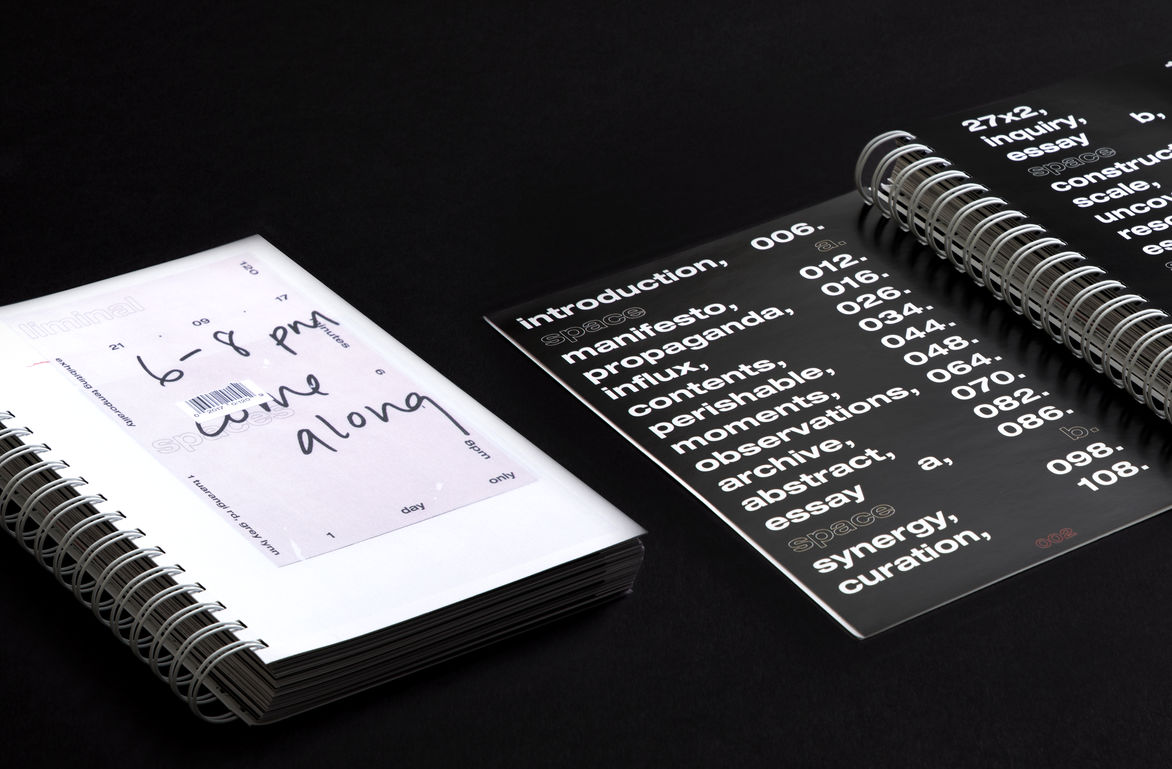 liminal
120
21
09
17
minutes
6-8 pm
exhibiting temporality
6
come
spaces
along
8pm
1 tuarangi rd, grey lynn
1
day
only
introduction, 006.
space a.
manifesto, 012.
propaganda, 016.
influx, 026.
contents, 034.
perishable, 044.
moments, 048.
observations, 064.
archive, 070.
abstract, 082.
essay a, 086.
space b.
synergy, 098.
curation, 108.
002
27x2,
inquiry,
essay b,
space
scale,